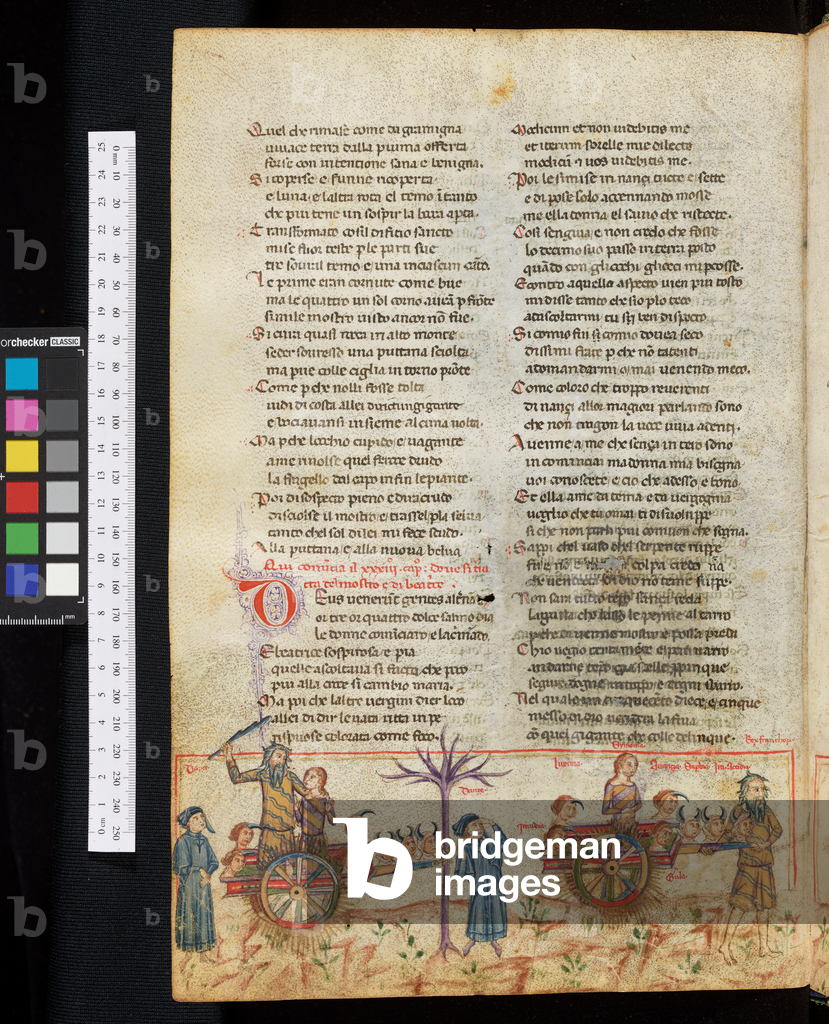 Quel che rimase come da gramigna
uiuace terra dalla piuma offerta
forse con intentione sana e benigna.
Si coperse e funne ricoperta
e luna e laltra rota el temo ītanto
che piu tene un sospir la bocca apta.
Transformato cosi l dificio sancto
mise fuor teste p le parti sue
tre soural temo e una in ciascun cāto.
Le prime eran cornute come bue
ma le quattro un sol corno auean p frōte
simile mostro uisto ancor nō fue.
Sicura quasi rocca in alto monte
seder souresso una puttana sciolta
mapue colle ciglia intorno prōte
Come pche nolli fosse tolta
uidi di costa allei dritto un gigante
e basciauansi insieme alcuna uolta.
Ma pche locchio cupido e uagante
a me riuolse quel feroce drudo
la flagello dal capo infin le piante.
Poi di sospecto pieno e dira crudo
disciolse il mostro e trassel p la selua
tanto che sol di lei mi fece scudo.
Alla puttana e alla nuoua belua
Qui comīcia il xxxiij. cap. doue si tra
cta del mostro e di beatrice.
Deus uenerūt gentes alternādo
or tre or quattro dolce salmodia
le donne comīciaro e lacrimādo.
E beatrice sospirosa e pia
quelle ascoltaua si facta che poco
piu alla croce si cambio maria.
Ma poi che laltre uergini dier loco
allei di dir leuata ritta in pe
rispuose colorata come foco.
Modicum et non uidebitis me
et iterum sorelle mie dilecte
modicū et uos uidebitis me.
Poi le si mise innanzi tucte e sette
e dopo se solo accennando mosse
me e la donna el sauio che ristette.
Cosi sen giua e non credo che fosse
lo decimo suo passo in terra posto
quādo con gliocchi gliocchi mi pcosse.
E con tranquillo aspecto uien piu tosto
mi disse tanto che sio plo teco
ad ascoltarmi tu sii ben disposto.
Si comio fui si como doueua seco
dissemi frate pche nō tattenti
a domandarmi omai uenendo meco.
Come coloro che troppo reuerenti
dinanzi allor magiori parlando sono
che non traggon la uoce uiua a denti.
Auenne a me che sença intero sono
incominciai madonna mia bisogna
uoi conoscete e cio che adesso e bono.
Et ella a me da tema e da uergogna
uoglio che tu omai ti disuiluppe
si che non parli piu comom che sogna.
Sappi chel uaso chel serpente ruppe
fu e nō e ma chi na colpa creda
che uendetta di dio nō teme suppe.
Non sara tutto tempo sança reda
laguila che lasso le penne al carro
p che diuenne mostro e poscia preda
Chio ueggio certamente e pero narro
a darne tempo gia stelle ppinque
secure dogne intoppo e dogni sbarro.
Nel quale un cinquecento diece e cinque
messo di dio
cō quel gigante che collei delinque.
Dante
Dante
Superbia
Luxuria
Auaritia
Inuidia
Gula
Rex franchorum
bridgeman
images
b
colorchecker CLASSIC
mm
0 mm 10 20 30 40 50 60 70 80 90 100 110 120 130 140 150 160 170 180 190 200 210 220 230 240 250
25 24 23 22 21 20 19 18 17 16 15 14 13 12 11 10 9 8 7 6 5 4 3 2 1 0 cm